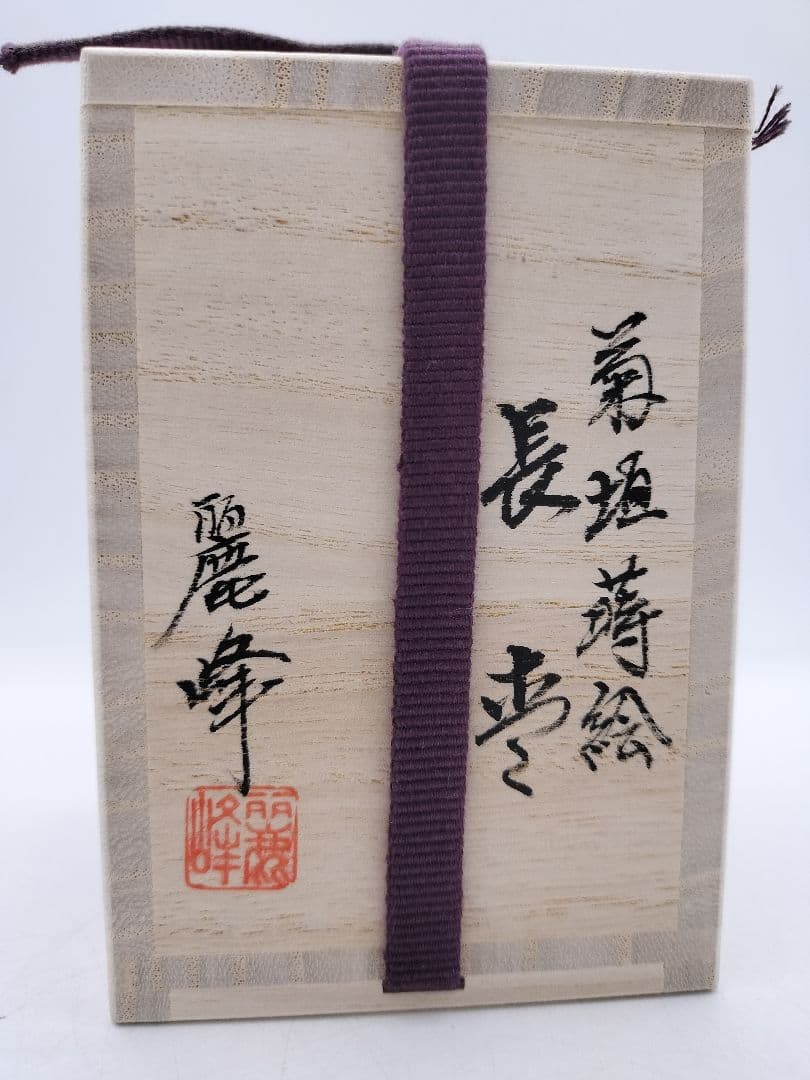 菊垣蒔絵
長棗
麗峰
麗峰